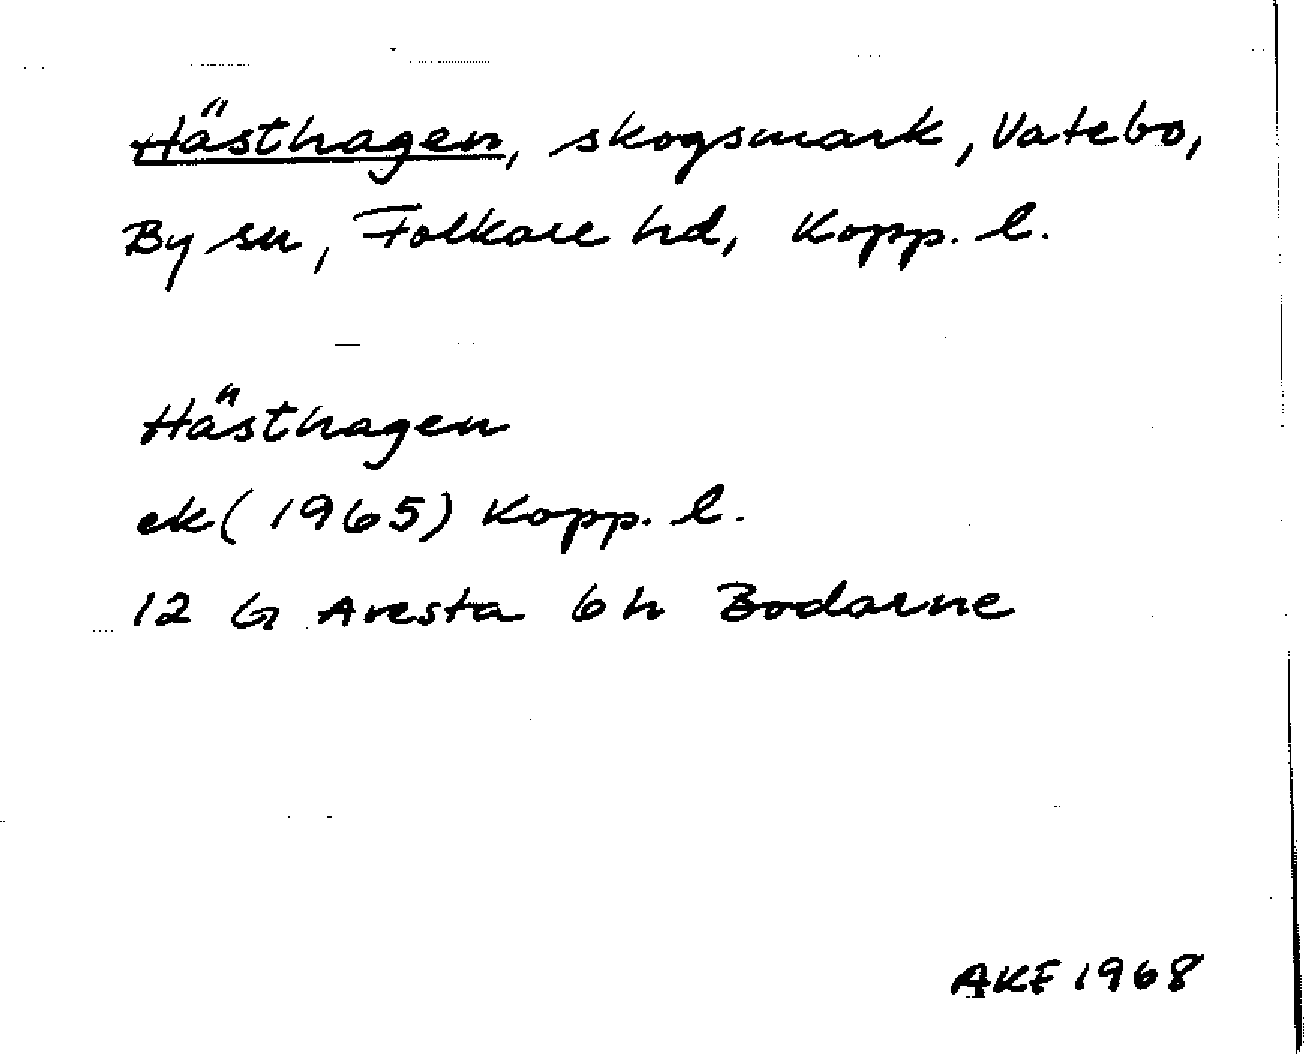 Hästhagen, skogsmark, Vatebo,
By sn, Folkare hd, Kopp. l.
Hästhagen
ek (1965) Kopp. l.
12 G Avesta 6 h Bodarne
AKE 1968